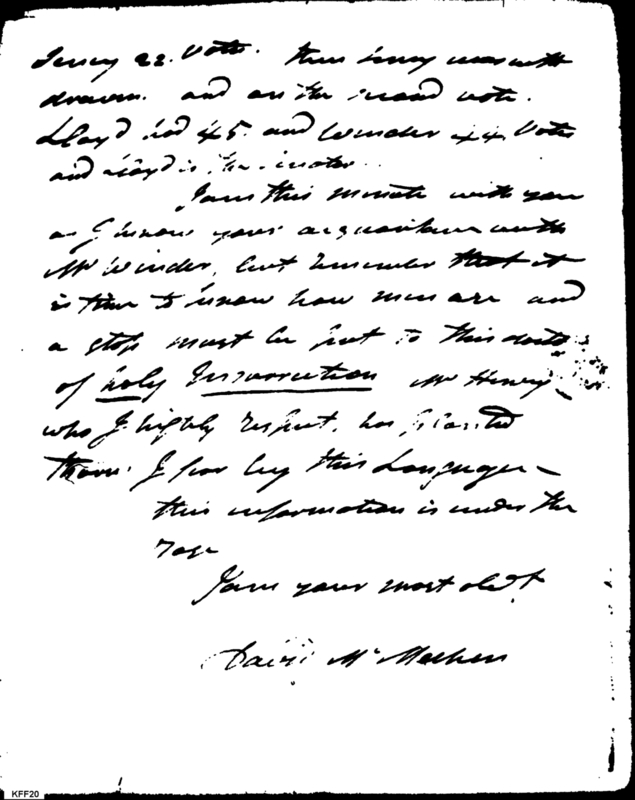 22. Vote. then was with
drawn. and on the second vote.
Lloyd had 45. and Winder 44 Votes
and Lloyd is the
I am this minute with you
as I know your acquaintance with
Mr Winder, but remember that it
is time to know how men are and
a stop must be put to this
of holy Insurrection Mr Henry
who I highly respect, has planted
Thorns I fear by this Language—
this information is under the
rose
I am your most obdt
David Mc Mechen
KFF20